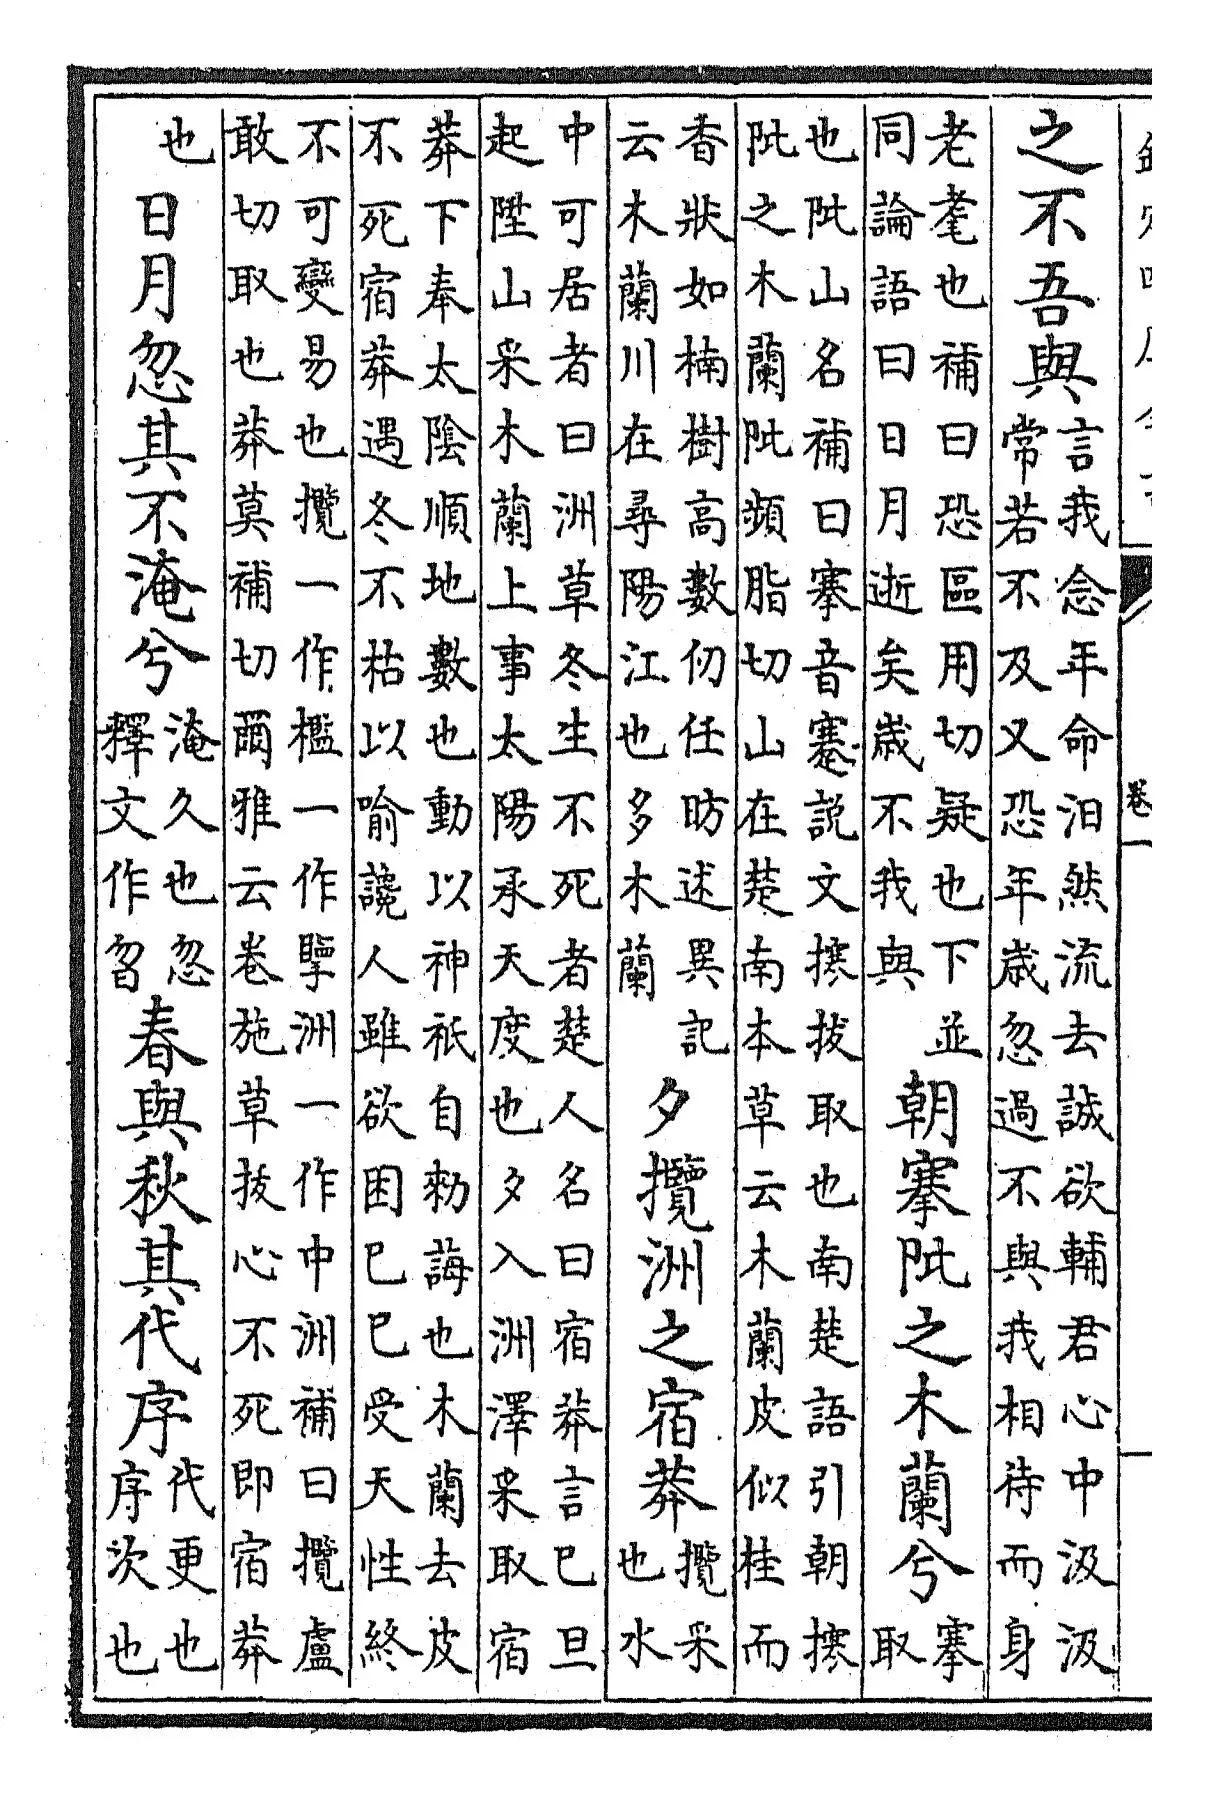 欽定四庫全書
卷一
之不吾與
言我念年命汨然流去誠欲輔君心中汲汲
常若不及又恐年歲忽過不與我相待而身
老耄也補曰恐區用切疑也下並
同論語曰日月逝矣歲不我與
朝搴阰之木蘭兮
搴
取
也阰山名補曰搴音蹇說文攓拔取也南楚語引朝攓
阰之木蘭阰頻脂切山在楚南本草云木蘭皮似桂而
香狀如楠樹高數仞任昉述異記
云木蘭川在尋陽江也多木蘭
夕攬洲之宿莽
攬采
也水
中可居者曰洲草冬生不死者楚人名曰宿莽言已旦
起陞山采木蘭上事太陽承天度也夕入洲澤采取宿
莽下奉太陰順地數也動以神祇自勑誨也木蘭去皮
不死宿莽遇冬不枯以喻讒人雖欲困已已受天性終
不可變易也攬一作檻一作擥洲一作中洲補曰攬盧
敢切取也莽莫補切爾雅云卷施草拔心不死即宿莽
也
日月忽其不淹兮
淹久也忽
釋文作曶
春與秋其代序
代更也
序次也